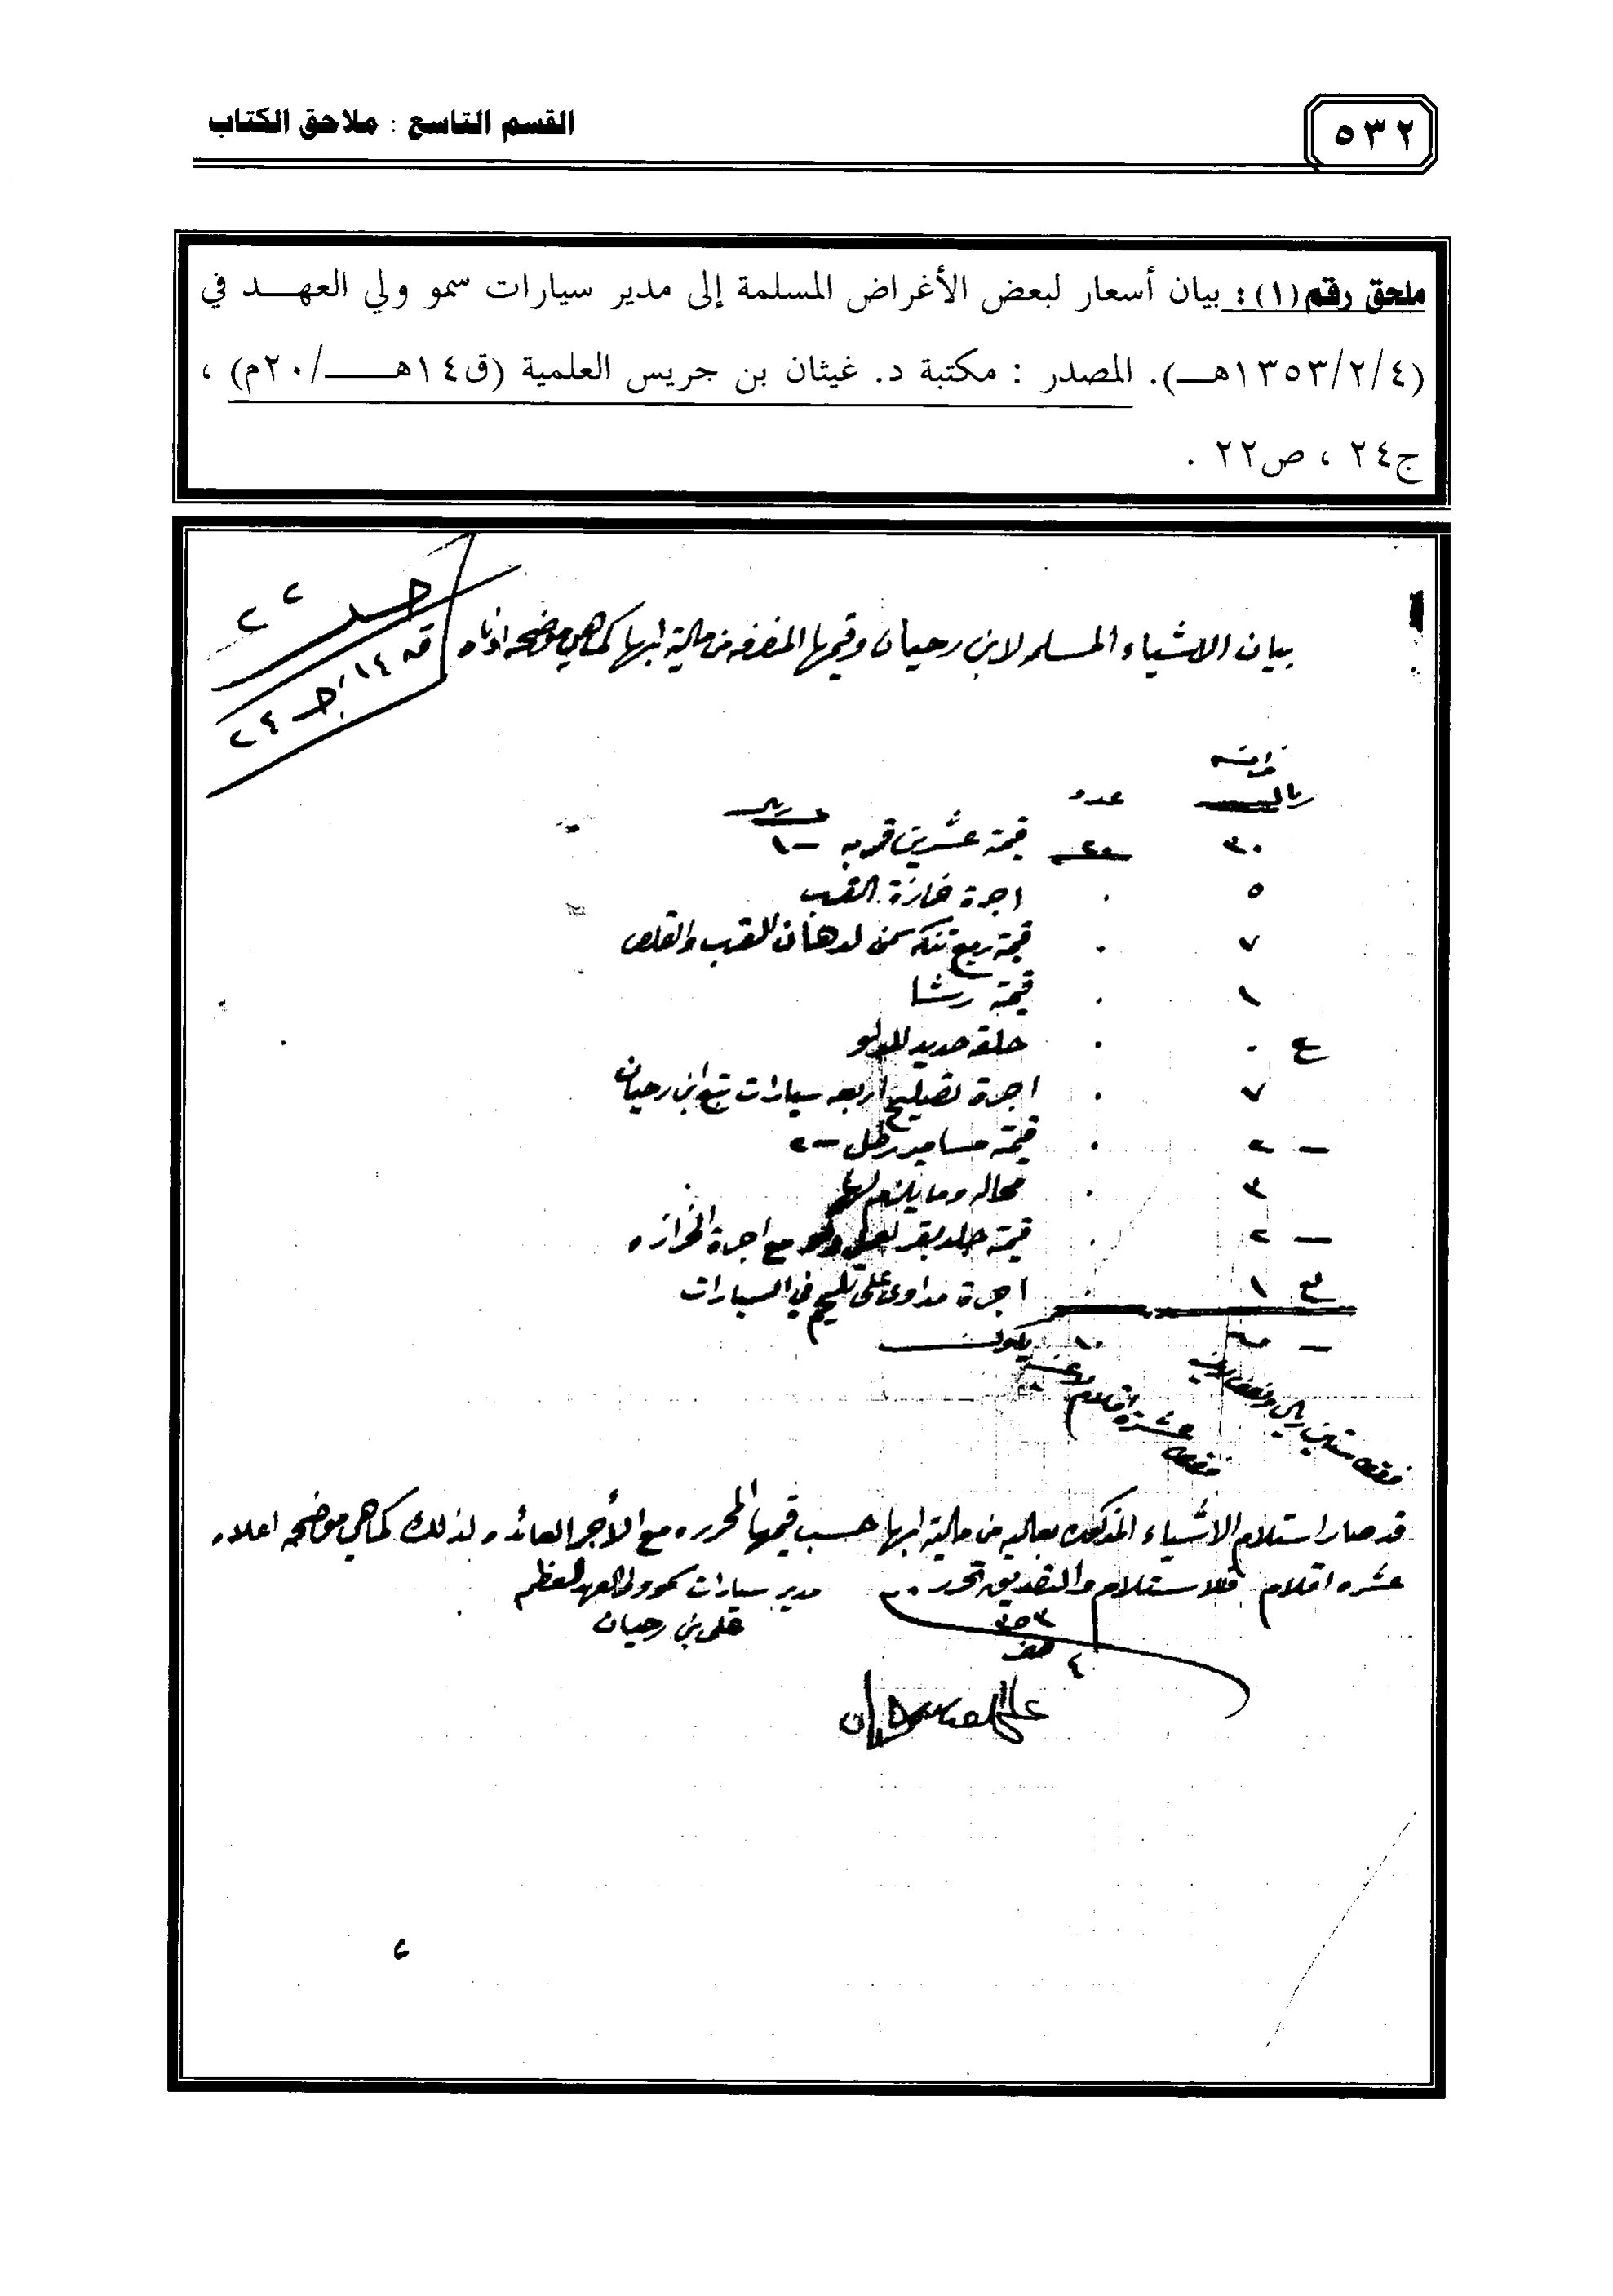 ٥٣٢
القسم التاسع : ملاحق الكتاب
ملحق رقم (١) : بيان أسعار لبعض الأغراض المسلمة إلى مدير سيارات سمو ولي العهد في
(١٣٥٣/٢/٤هـ). المصدر : مكتبة د. غيثان بن جريس العلمية (ق١٤هـ/٢٠م) ،
ج٢٤ ، ص٢٢ .
بيان الاشياء المسلمه لابن رحيان وقيمها المنصرفه من مالية ابها كما هي موضحه ادناه
ق ١٤ جـ ٢٤
ريال عدد
٣٠ ٢٠ قيمة عشرين قربه
٥ ٠ اجرة خرازة القرب
٧ ٠ قيمة ربع تنكه سمن لدهان القرب
١ ٠ قيمة رشا
٠ حلقه حديد للدلو
٧ ٠ اجرة تصليح اربعه سيارات تبع ابن رحيان
٢ ٠ قيمة مسامير رطل ٢
٣ ٠ محاله وما يلزم لها
٢ ٠ قيمة جلد بقر مع اجرة الخرازه
١ ٠ اجرة في السيارات
٦٠ ١٠ يكون
فقط ستين ريال
فقط عشره اقلام
قد صار استلام الاشياء المذكوره بعاليه من مالية ابها حسب قيمها المحرره مع الأجر العائد ولذلك كما هي موضحه اعلاه
عشره اقلام فللاستلام والتصديق تحرر
٤ صفر ٣٥٣
مدير سيارات سمو ولي العهد المعظم
علي بن رحيان